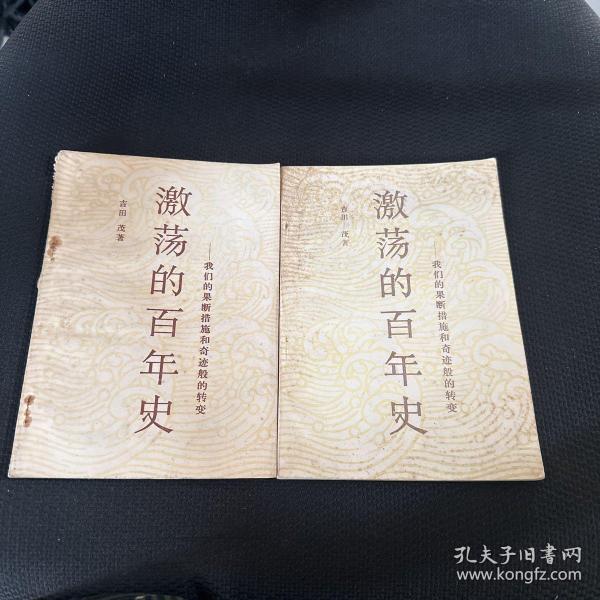 激荡的百年史
——我们的果断措施和奇迹般的转变
吉田 茂著
激荡的百年史
——我们的果断措施和奇迹般的转变
吉田 茂著
孔夫子旧书网
www.kongfz.com